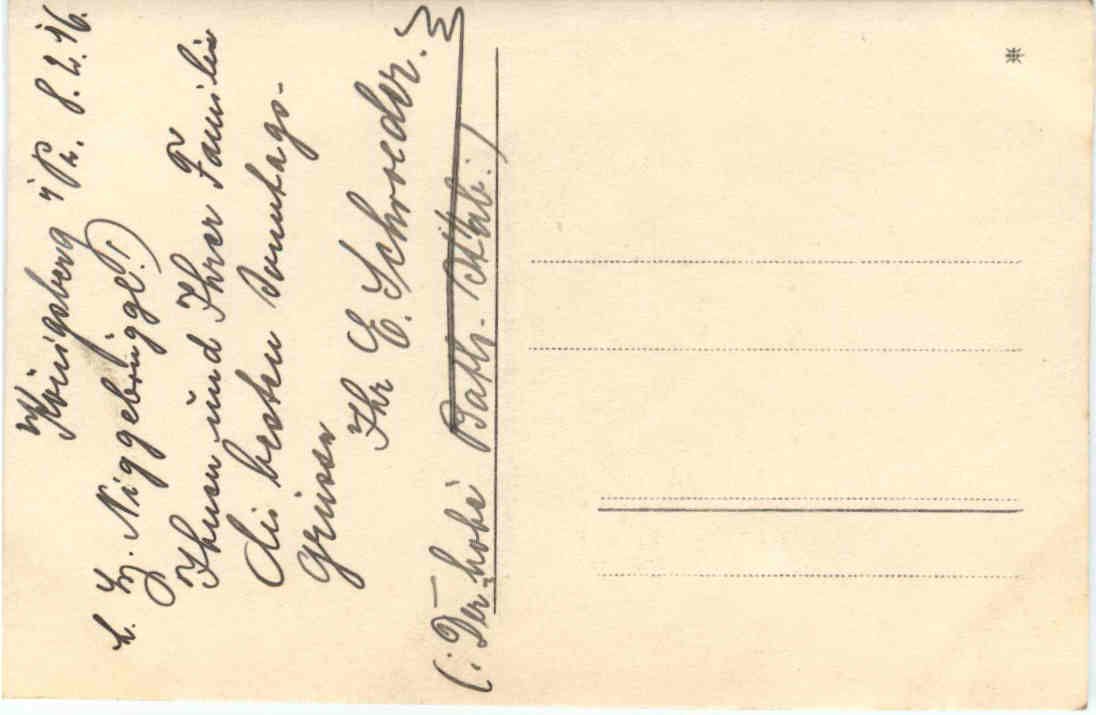 Königsberg i/Pr. 8.2.16.
L. Hz. Niggebrügge!)
Ihnen und Ihrer Familie
die besten Sonntags-
grüsse
Ihr E. Schroeder.
(: Der hohe Battr. Stab :)